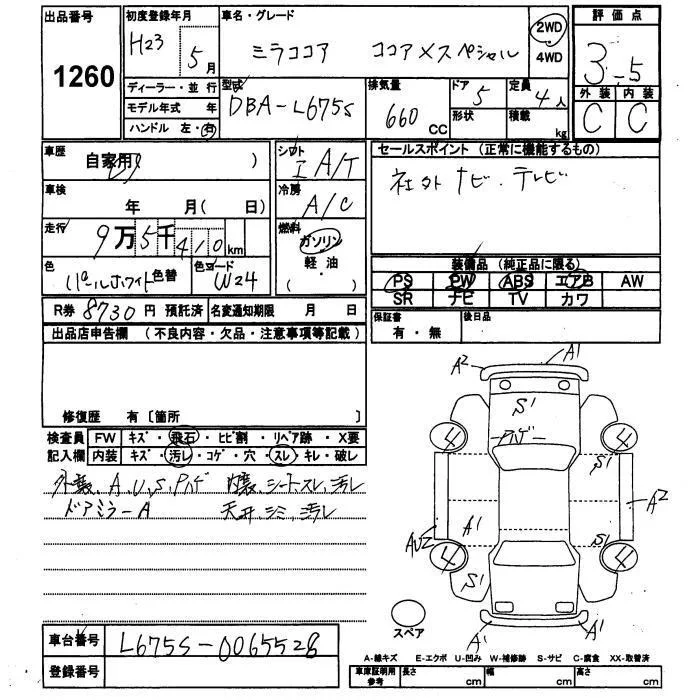 出品番号
1260
初度登録年月
H23 5月
ディーラー・並行
モデル年式 年
ハンドル 左・右
車名・グレード
ミラココア ココアXスペシャル
2WD
4WD
評価点
3.5
外装 内装
C C
型式
DBA-L675S
排気量
660 CC
ドア 5
形状
定員 4人
積載 kg
車歴
自家用 )
車検
年 月( 日)
走行
9万5千410km
色
パールホワイト 色替
色コード W24
シフト
I A/T
冷房
A/C
燃料
ガソリン
軽油
( ・ )
セールスポイント(正常に機能するもの)
社外ナビ・テレビ
装備品(純正品に限る)
PS PW ABS エアB AW
SR ナビ TV カワ
R券 8730円 預託済 名変通知期限 月 日
保証書
有・無
後日品
出品店申告欄(不良内容・欠品・注意事項等記載)
修復歴 有〔箇所
検査員 FW キズ・飛石・ヒビ割・リペア跡・X要
記入欄 内装 キズ・汚レ・コゲ・穴・スレ・キレ・破レ
外装、A、U、S、Pハゲ 内装、シート、スレ、汚レ
ドアミラーA 天井、シミ、汚レ
A2 A1
S1
Pハゲ
4 4
S1
A2
AU2 A1
S1
4 4
S1
A1 A1
スペア
車台番号 L675S-0065528
登録番号
A-線キズ E-エクボ U-凹み W-補修跡 S-サビ C-腐食 XX-取替済
車庫証明用参考 長さ cm 幅 cm 高さ cm